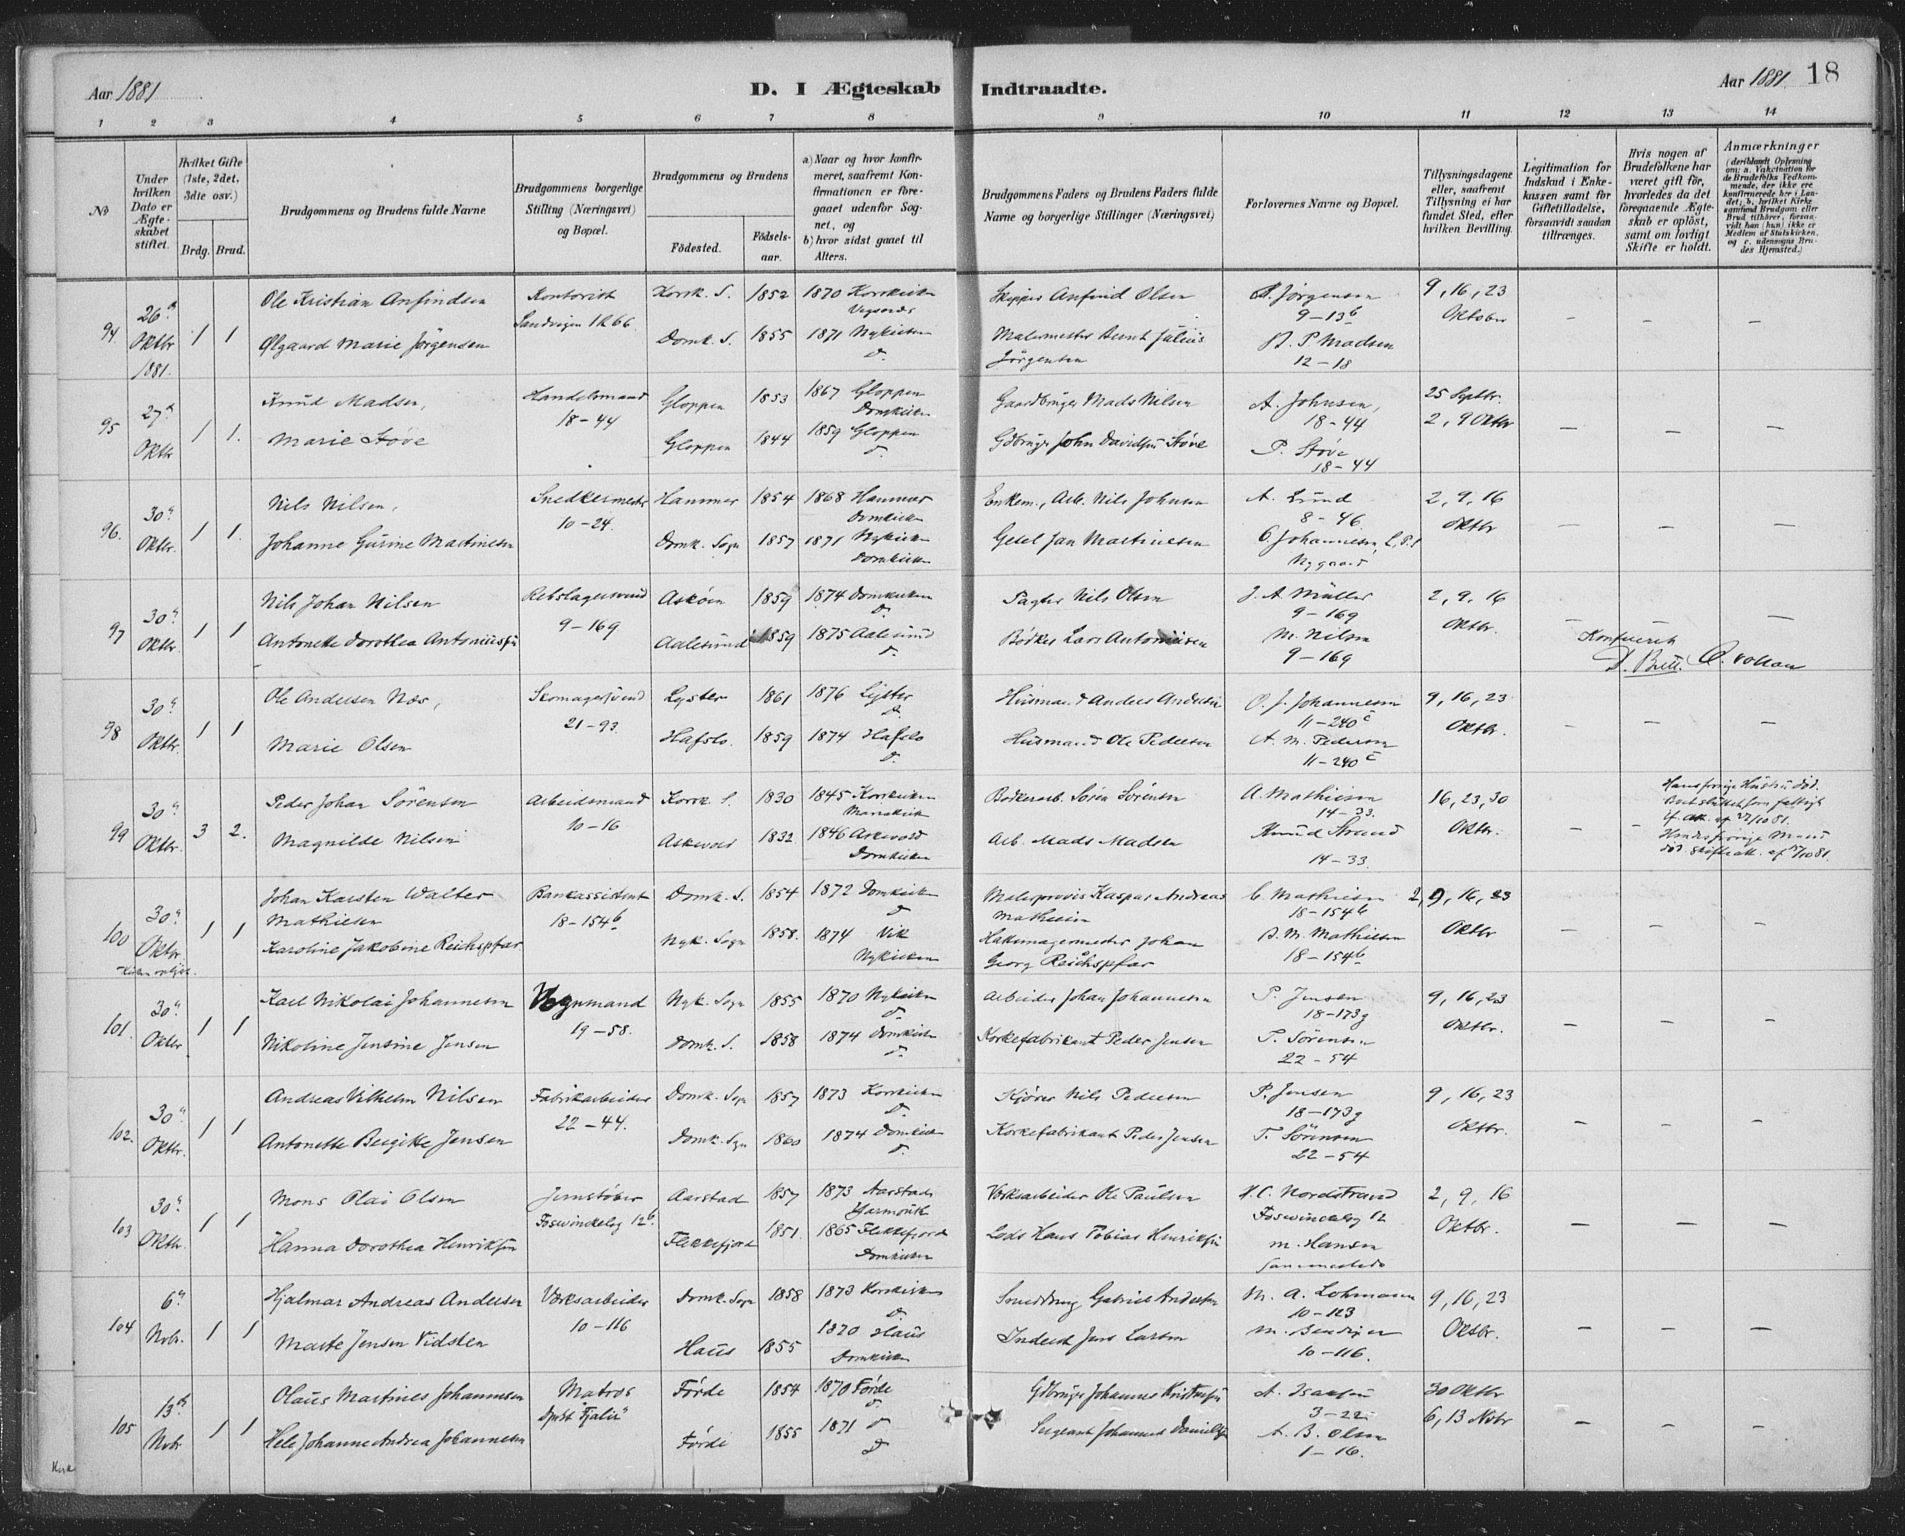 Aar 1881
D. I Ægteskab Indtraadte.
Aar 1881. 18
1 2 3 4 5 6 7 8 9 10 11 12 13 14
No
Under hvilken Dato er Ægteskabet stiftet.
Hvilket Gifte (1ste, 2det, 3die osv.)
Brdg. Brud.
Brudgommens og Brudens fulde Navne
Brudgommens borgerlige Stilling (Næringsvei) og Bopæl.
Brudgommens og Brudens
Födested. Födselsaar.
a) Naar og hvor konfirmeret, saafremt Konfirmationen er foregaaet udenfor Sognet, og
b) hvor sidst gaaet til Alters.
Brudgommens Faders og Brudens Faders fulde Navne og borgerlige Stillinger (Næringsvei)
Forlovernes Navne og Bopæl.
Tillysningsdagene eller, saafremt Tillysning ei har fundet Sted, efter hvilken Bevilling.
Legitimation for Indskud i Enkekassen samt for Giftetilladelse, forsaavidt saadan tiltrænges.
Hvis nogen af Brudefolkene har været gift för, hvorledes da det foregaaende Ægteskab er oplöst, samt om lovligt Skifte er holdt.
Anmærkninger
94 26 Oktbr 1881. 1 1
Ole Kristian Anfindsen Kontorist Korsk. S. 1852 1870 Korskirken Skipper Anfind Olsen A. Jörgensen 9, 16, 23
Sandvigen 1R66 9-13b Oktober
Ölgaard Marie Jörgensen Domk. S. 1855 1871 Nykirken Malermester Bernt Julius Jörgensen B. P. Madsen
12-18
95 27 Oktbr 1 1.
Knud Madsen, Handelsmand Gloppen 1853 1867 Gloppen Gaardbruger Mads Nilsen A. Johnsen, 25 Septbr.
18-44 Domkirken 18-44 2, 9 Oktbr
Marie Støve Gloppen 1844 1859 Gloppen Gdbruger John Davidsen Støve P. Støve
18-44
96. 30 Oktbr. 1 1.
Nils Nilsen, Snedkermester Hammer 1854 1868 Hammer Enkem., Arb. Nils Johnsen A. Lund 2, 9, 16
10-24. Domkirken 8-46 Oktbr
Johanne Gurine Martinsen Domk. Sogn 1857 1871 Nykirken Gesel Jan Martinsen O. Johannesen,
Domkirken Nygaard
97 30 Oktbr. 1 1
Nils Johan Nilsen Rebslagersvend Askøen 1859 1874 Domkirken Nils Olsen J. A. Müller 2, 9, 16
9-169 9-169 Oktbr.
Antonette Dorothea Antoniusen Aalesund 1859 1875 Aalesund Bødker Lars Antoniusen M. Nilsen
9-169
98 30 Oktbr. 1 1
Ole Andersen Næs, Skomagersvend Lyster 1861 1876 Lyster Husmand Anders Andersen O. J. Johannesen 9, 16, 23
21-93. 11-240c Oktbr.
Marie Olsen Hafslo. 1859 1874 Hafslo Husmand Ole Pedersen A. M. Pedersen
11-240c
99 30 Oktbr. 3 2.
Peder Johan Sörensen Arbeidsmand Korsk. S. 1830 1845 Korskirken Bødkerarb. Sören Sörensen A. Mathiesen 16, 23, 30
10-16 14-33. Oktbr.
Magnilde Nilsen Askevold 1832 1846 Askevold Arb. Mads Madsen Knud Strand
Domkirken 14-33.
Hans forrige Hustru död.
Hendes forrige Mand död
100 30 Oktbr. 1 1
Johan Karsten Walter Mathiesen Bankassistent Domk. S. 1854 1872 Domkirken Kaspar Andreas Mathiesen C. Mathiesen 2, 9, 16, 23
18-154b 18-154b Oktbr
Karoline Jakobine Reichspfar Nyk. Sogn 1858. 1874 Vik Johan Georg Reichspfar B. M. Mathiesen
Nykirken 18-154b
101. 30 Oktbr 1 1
Karl Nikolai Johannesen Vognmand Nyk. Sogn 1855 1870 Nykirken Arbeider Johan Johannesen P. Jensen 9, 16, 23
19-58. 18-173g Oktbr.
Nikoline Jensine Jensen Domk. S. 1858 1874 Domkirken Korkefabrikant Peder Jensen T. Sörensen
22-54
102. 30 Oktbr. 1 1
Andreas Vilhelm Nilsen Fabrikarbeider Domk. Sogn 1857 1873 Korskirken Kjörer Nils Pedersen P. Jensen 9, 16, 23
22-44. 18-173g Oktbr.
Antonette Bergitte Jensen Domk. Sgn 1860 1874 Domkirken Korkefabrikant Peder Jensen T. Sörensen
22-54
103 30 Oktbr. 1 1
Mons Olai Olsen Jernstöber Aarstad 1857 1873 Aarstad Værksarbeider Ole Paulsen H. C. Nordstrand 2, 9, 16
Foswinckelsg 12b. Foswinckelsg 12 Oktbr.
Hanna Dorothea Henriksen Flekkefjord 1851. 1865 Flekkefjord Lods Hans Tobias Henriksen M. Hansen
Domkirken sammesteds
104 6 Novbr. 1 1
Hjalmar Andreas Andersen Værksarbeider Domk. Sogn 1858 1873 Korskirken Gabriel Andersen M. A. Lohmann 9, 16, 23
10-116 10-123 Oktbr.
Marte Jensen Vidsten Haus 1855 1870 Haus Inderst Jens Larsen
Domkirken 10-116.
105 13 Novbr 1 1
Olaus Martines Johannesen Matros Førde 1854 1870 Førde Gdbruger Johannes A. Isaksen 30 Oktbr
"Fjalir" 3-22 6, 13 Novbr
Johanne Andrea Johannesen Førde 1855 1871 Sergeant Johannes Danielsen A. B. Olsen
1-16.